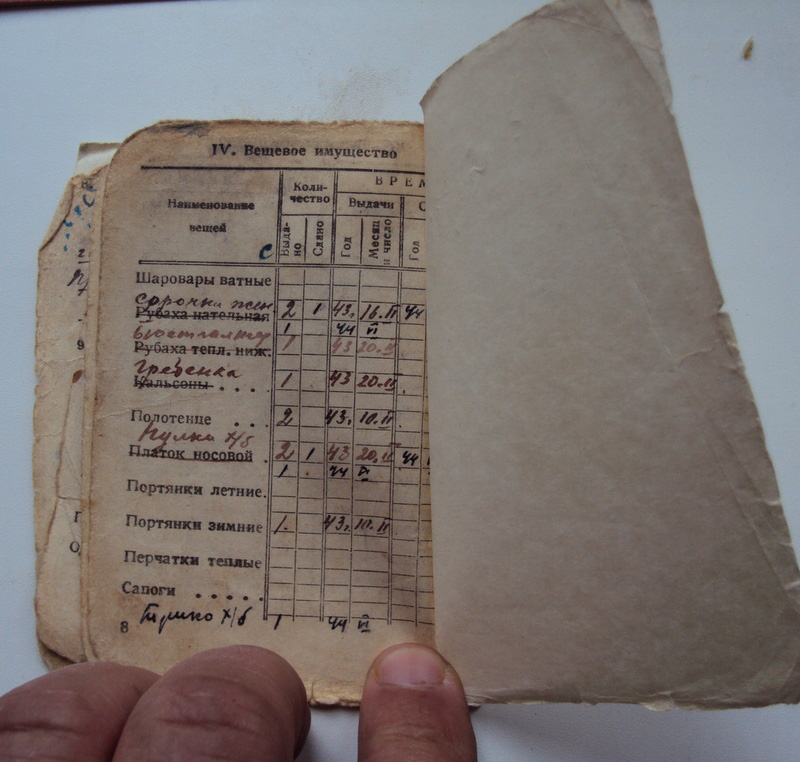 IV. Вещевое имущество
Наименование вещей
Коли-
чество
ВРЕМ
Выдачи
С
Выда-
но
Сдано
Год
Месяц
и число
Год
Шаровары ватные
сорочки жен
Рубаха нательная 2 1 43. 16.II 44
1 44 VI
бюстгалтер
Рубаха тепл. ниж. 1 43 20.II
гребенка
Кальсоны . . . . 1 43 20.II
Полотенце . . . 2 43. 10.II
Чулки х/б
Платок носовой . 2 1 43 20.II 44
1 44 VI
Портянки летние.
Портянки зимние 1. 43. 10.II
Перчатки теплые
Сапоги . . . . .
Трико х/б 1 44 VI
8